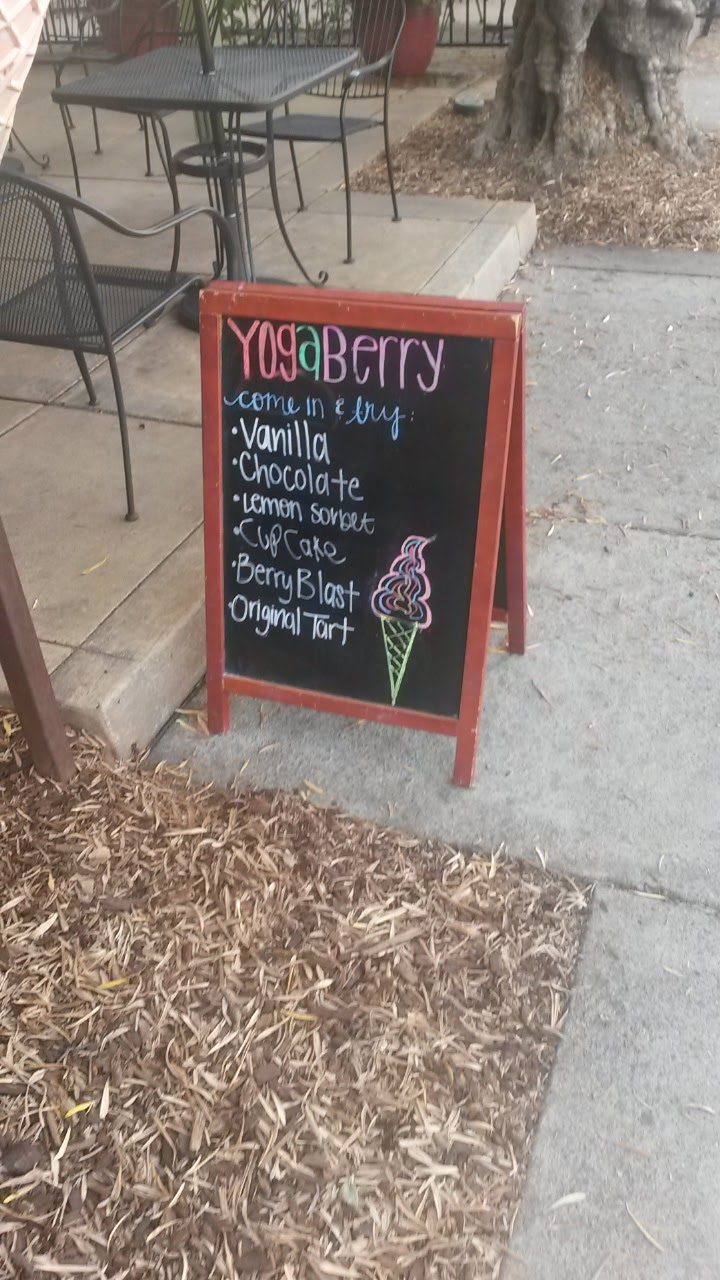 YogaBerry
come in & try:
• Vanilla
• Chocolate
• Lemon Sorbet
• CupCake
• Berry Blast
• Original Tart